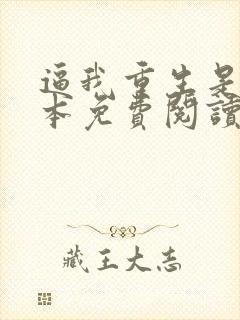 逼我重生是
本免費閱讀
藏王大志